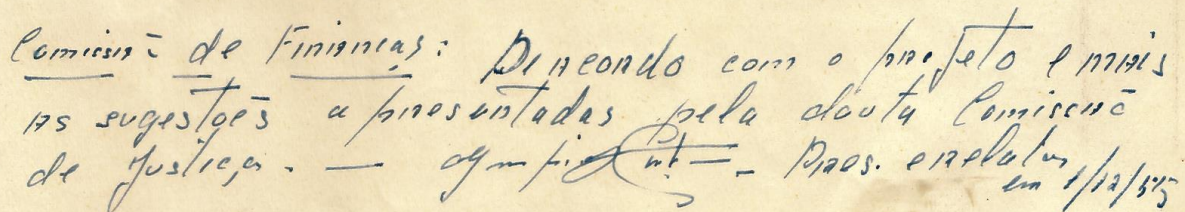 Comissã de Finanças: De acordo com o projeto e mais
as sugestões apresentadas pela douta Comissã
de Justiça. — Pres. e relator
em 1/12/55